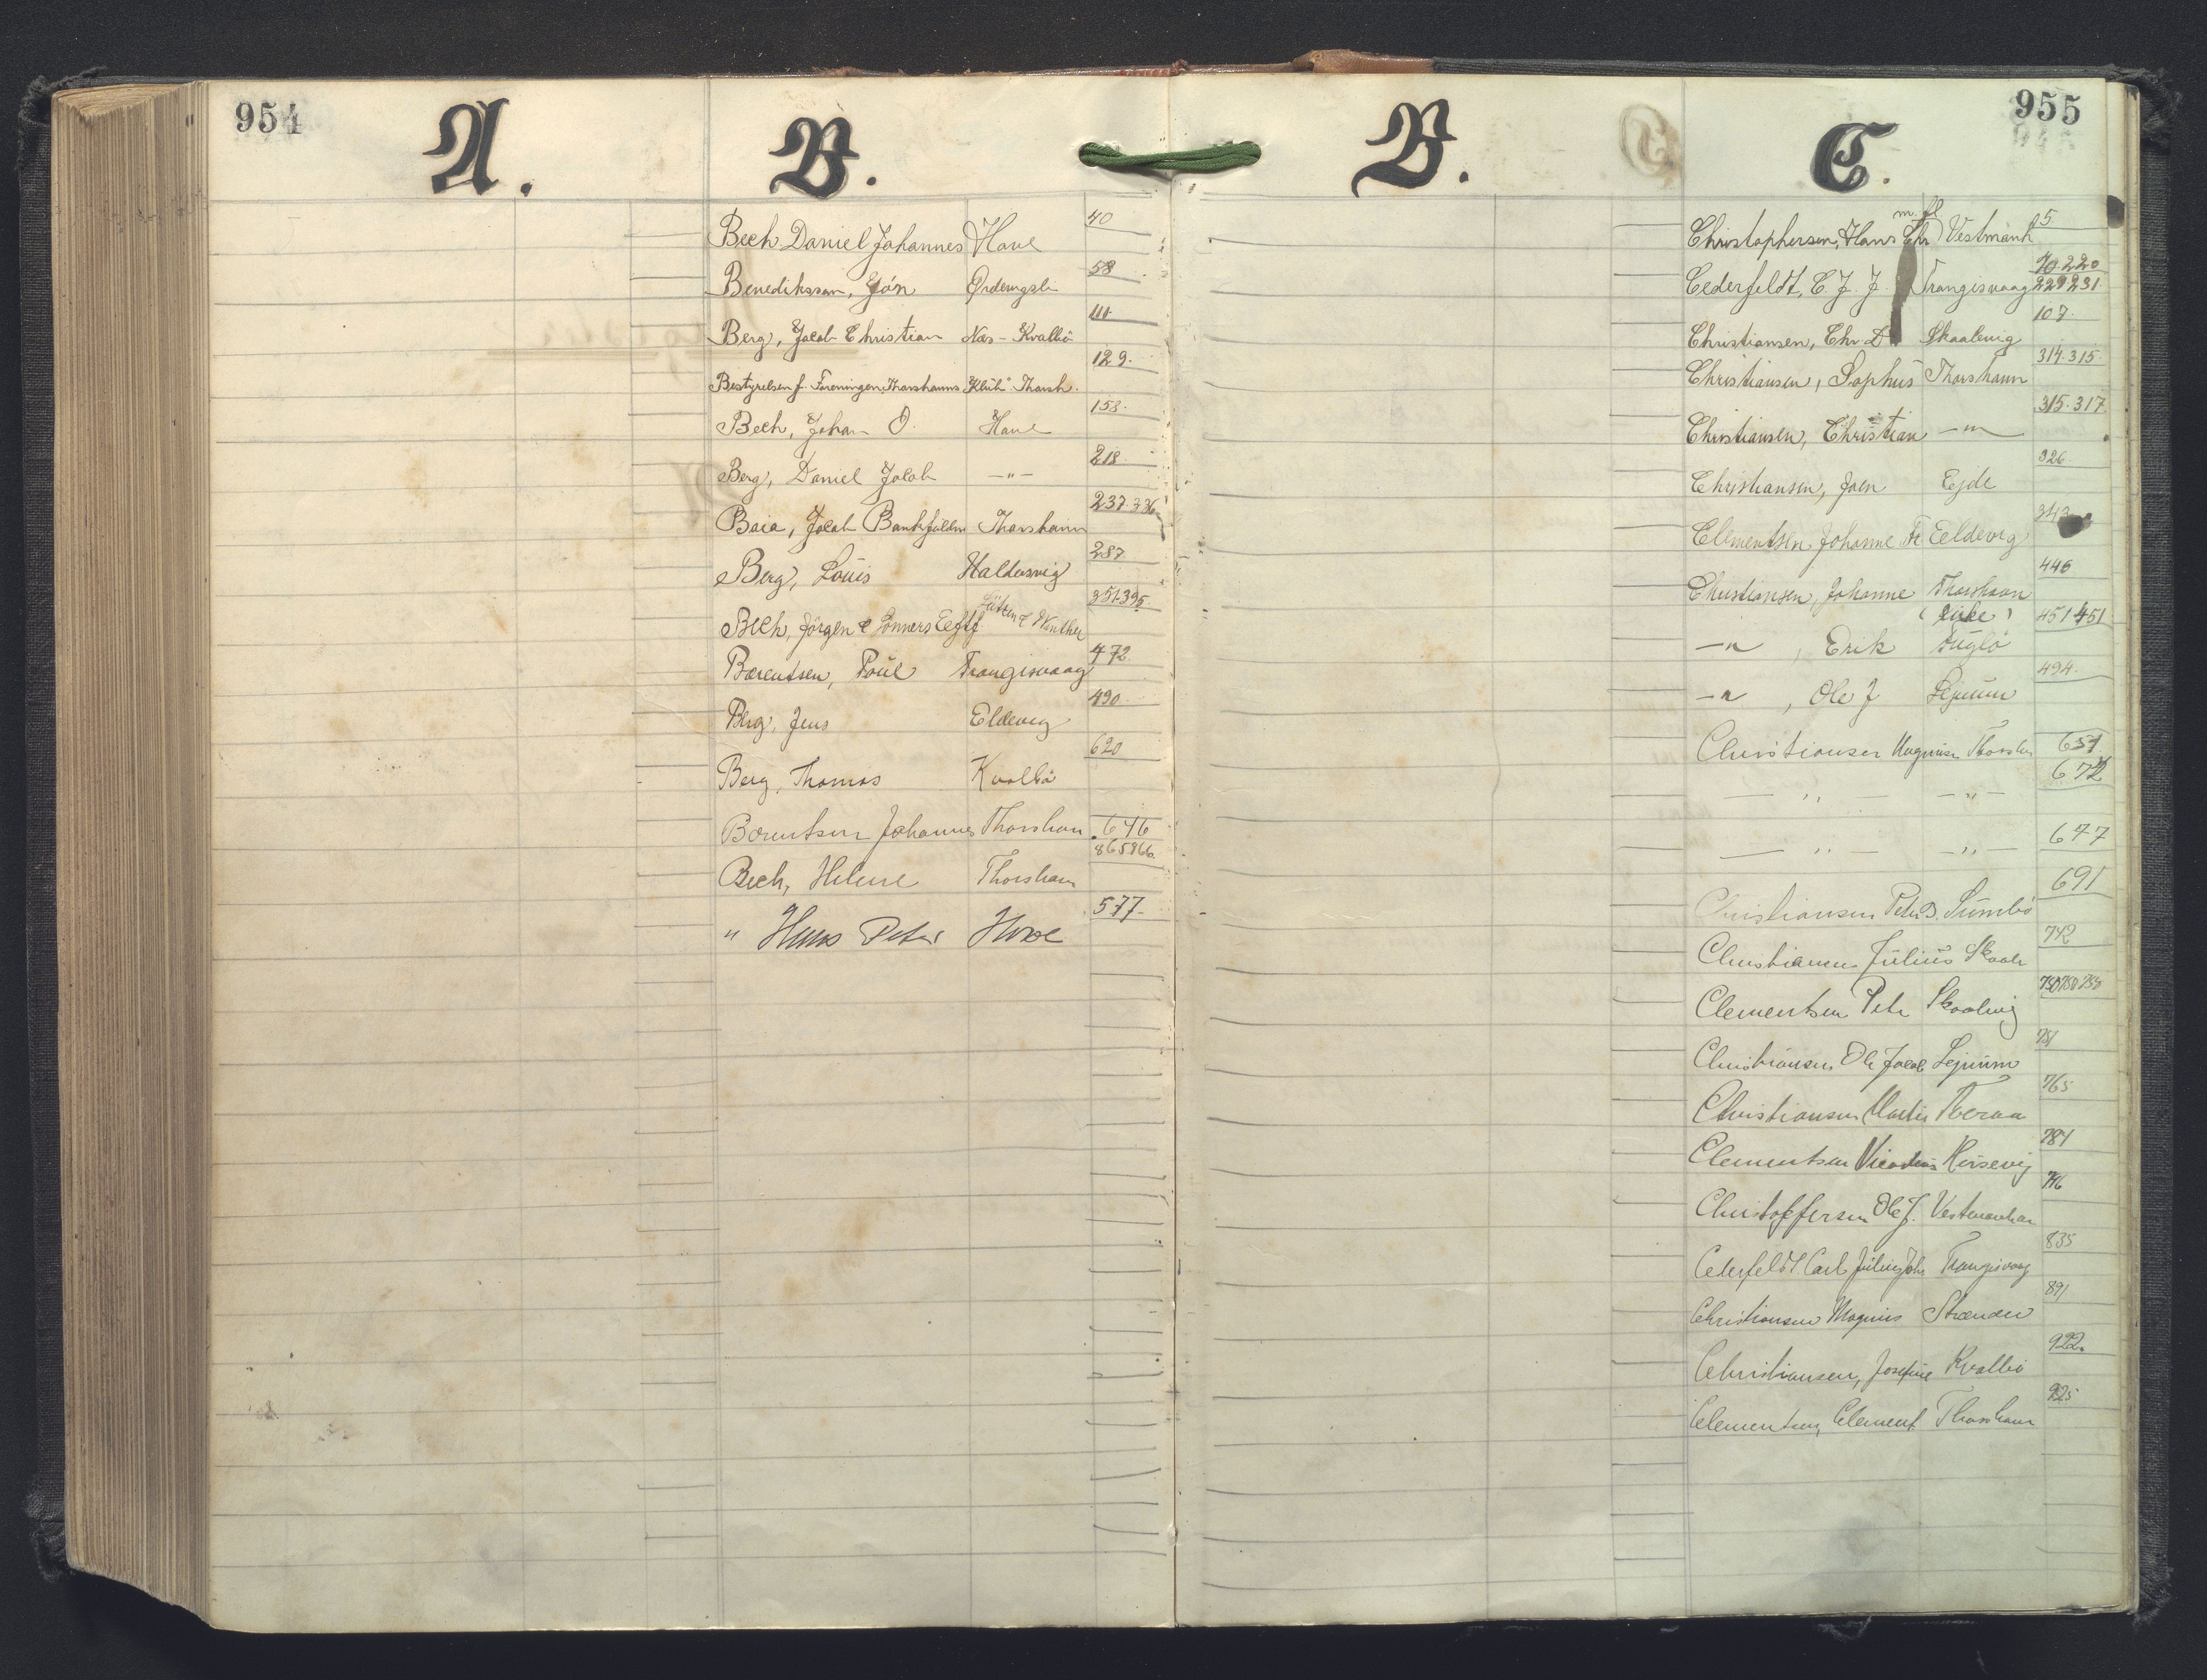 954
A.
B.
40
Bech Daniel Johannes Hove
58
Benediksson, Jón
111
Berg, Jacob Christian Næs-Kvalbö
129.
Bestyrelsen f. Foreningen Thorshavns Klub Thorsh.
158.
Bech, Johan O. Hove
218.
Berg, Daniel Jacob —"—
237.336
Baia, Jacob Thorshavn
287
Berg, Louis Haldersvig
351.395.
Bech, Jörgen & Sönners Eeftf
472
Bærentsen, Poul Trangisvaag
490
Berg, Jens Eldevig
620
Berg, Thomas Kvalbö
646
Bærentsen Johannes Thorshavn
865866.
Bech, Helene Thorshavn
577-
" Hans Peter Hove
955
B.
C.
m. fl.
5
Christophersen, Hans Chr Vestmanh
70.220
Cederfeldt, C. J. J. Trangisvaag 229231.
107.
Christiansen, Chr. D Skaalevig
314.315.
Christiansen, Sophus Thorshavn
315.317.
Christiansen, Christian —"—
326.
Christiansen, Joen Ejde
343
Clementsen Johanne Fr Eeldevig
446
Christiansen, Johanne Thorshavn
(Enke) 451 451
—"—, Erik Fuglö
494.
—"—, Ole J Lejnum
Christiansen Magnus Thorshn 651
672
— " — — " —
677
— " — — " —
691
Christiansen Peter D. Sumbö
742
Christiansen Julius Skaale
750 750 750
Clementsen Peter Skaalevig
751
Christiansen Ole Jacob Lejnum
765
Christiansen Martin Tveraa
781
Clementsen Husevig
Christoffersen Ole J. Vestmanhavn
835
Cederfeldt Carl Julius Joh Trangisvaag
891
Christiansen Magnus Strænder
922.
Christiansen, Josefine Kvalbö
925
Clementsen, Clement Thorshavn